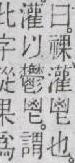 曰。祼灌鬯也
灌以鬱鬯。謂
此字從果爲